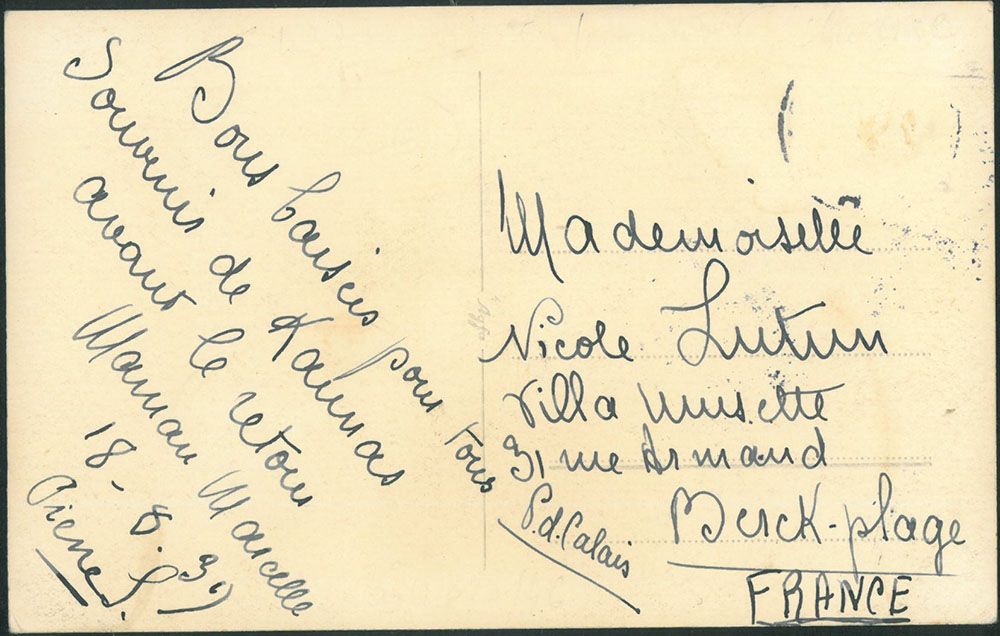 Bons baisers pour tous
Souvenir de Kaunas
avant le retour
Maman Marcelle
18-8.39
Pierre L.
Mademoiselle
Nicole Lutun
Villa Musette
31 rue Armand
Berck-plage
P.d.Calais
FRANCE